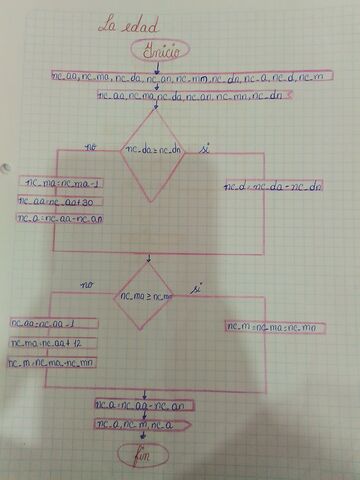 La edad
Inicio
nc_aa, nc_ma, nc_da, nc_an, nc_mn, nc_dn, nc_a, nc_d, nc_m
nc_aa, nc_ma, nc_da, nc_an, nc_mn, nc_dn
no nc_da≥nc_dn si
nc_ma=nc_ma-1 nc_d=nc_da-nc_dn
nc_aa=nc_aa+30
nc_a=nc_aa-nc_an
no nc_ma≥nc_mn si
nc_aa=nc_aa-1 nc_m=nc_ma=nc_mn
nc_ma=nc_aa+12
nc_m=nc_ma-nc_mn
nc_a=nc_aa-nc_an
nc_a, nc_m, nc_a
fin